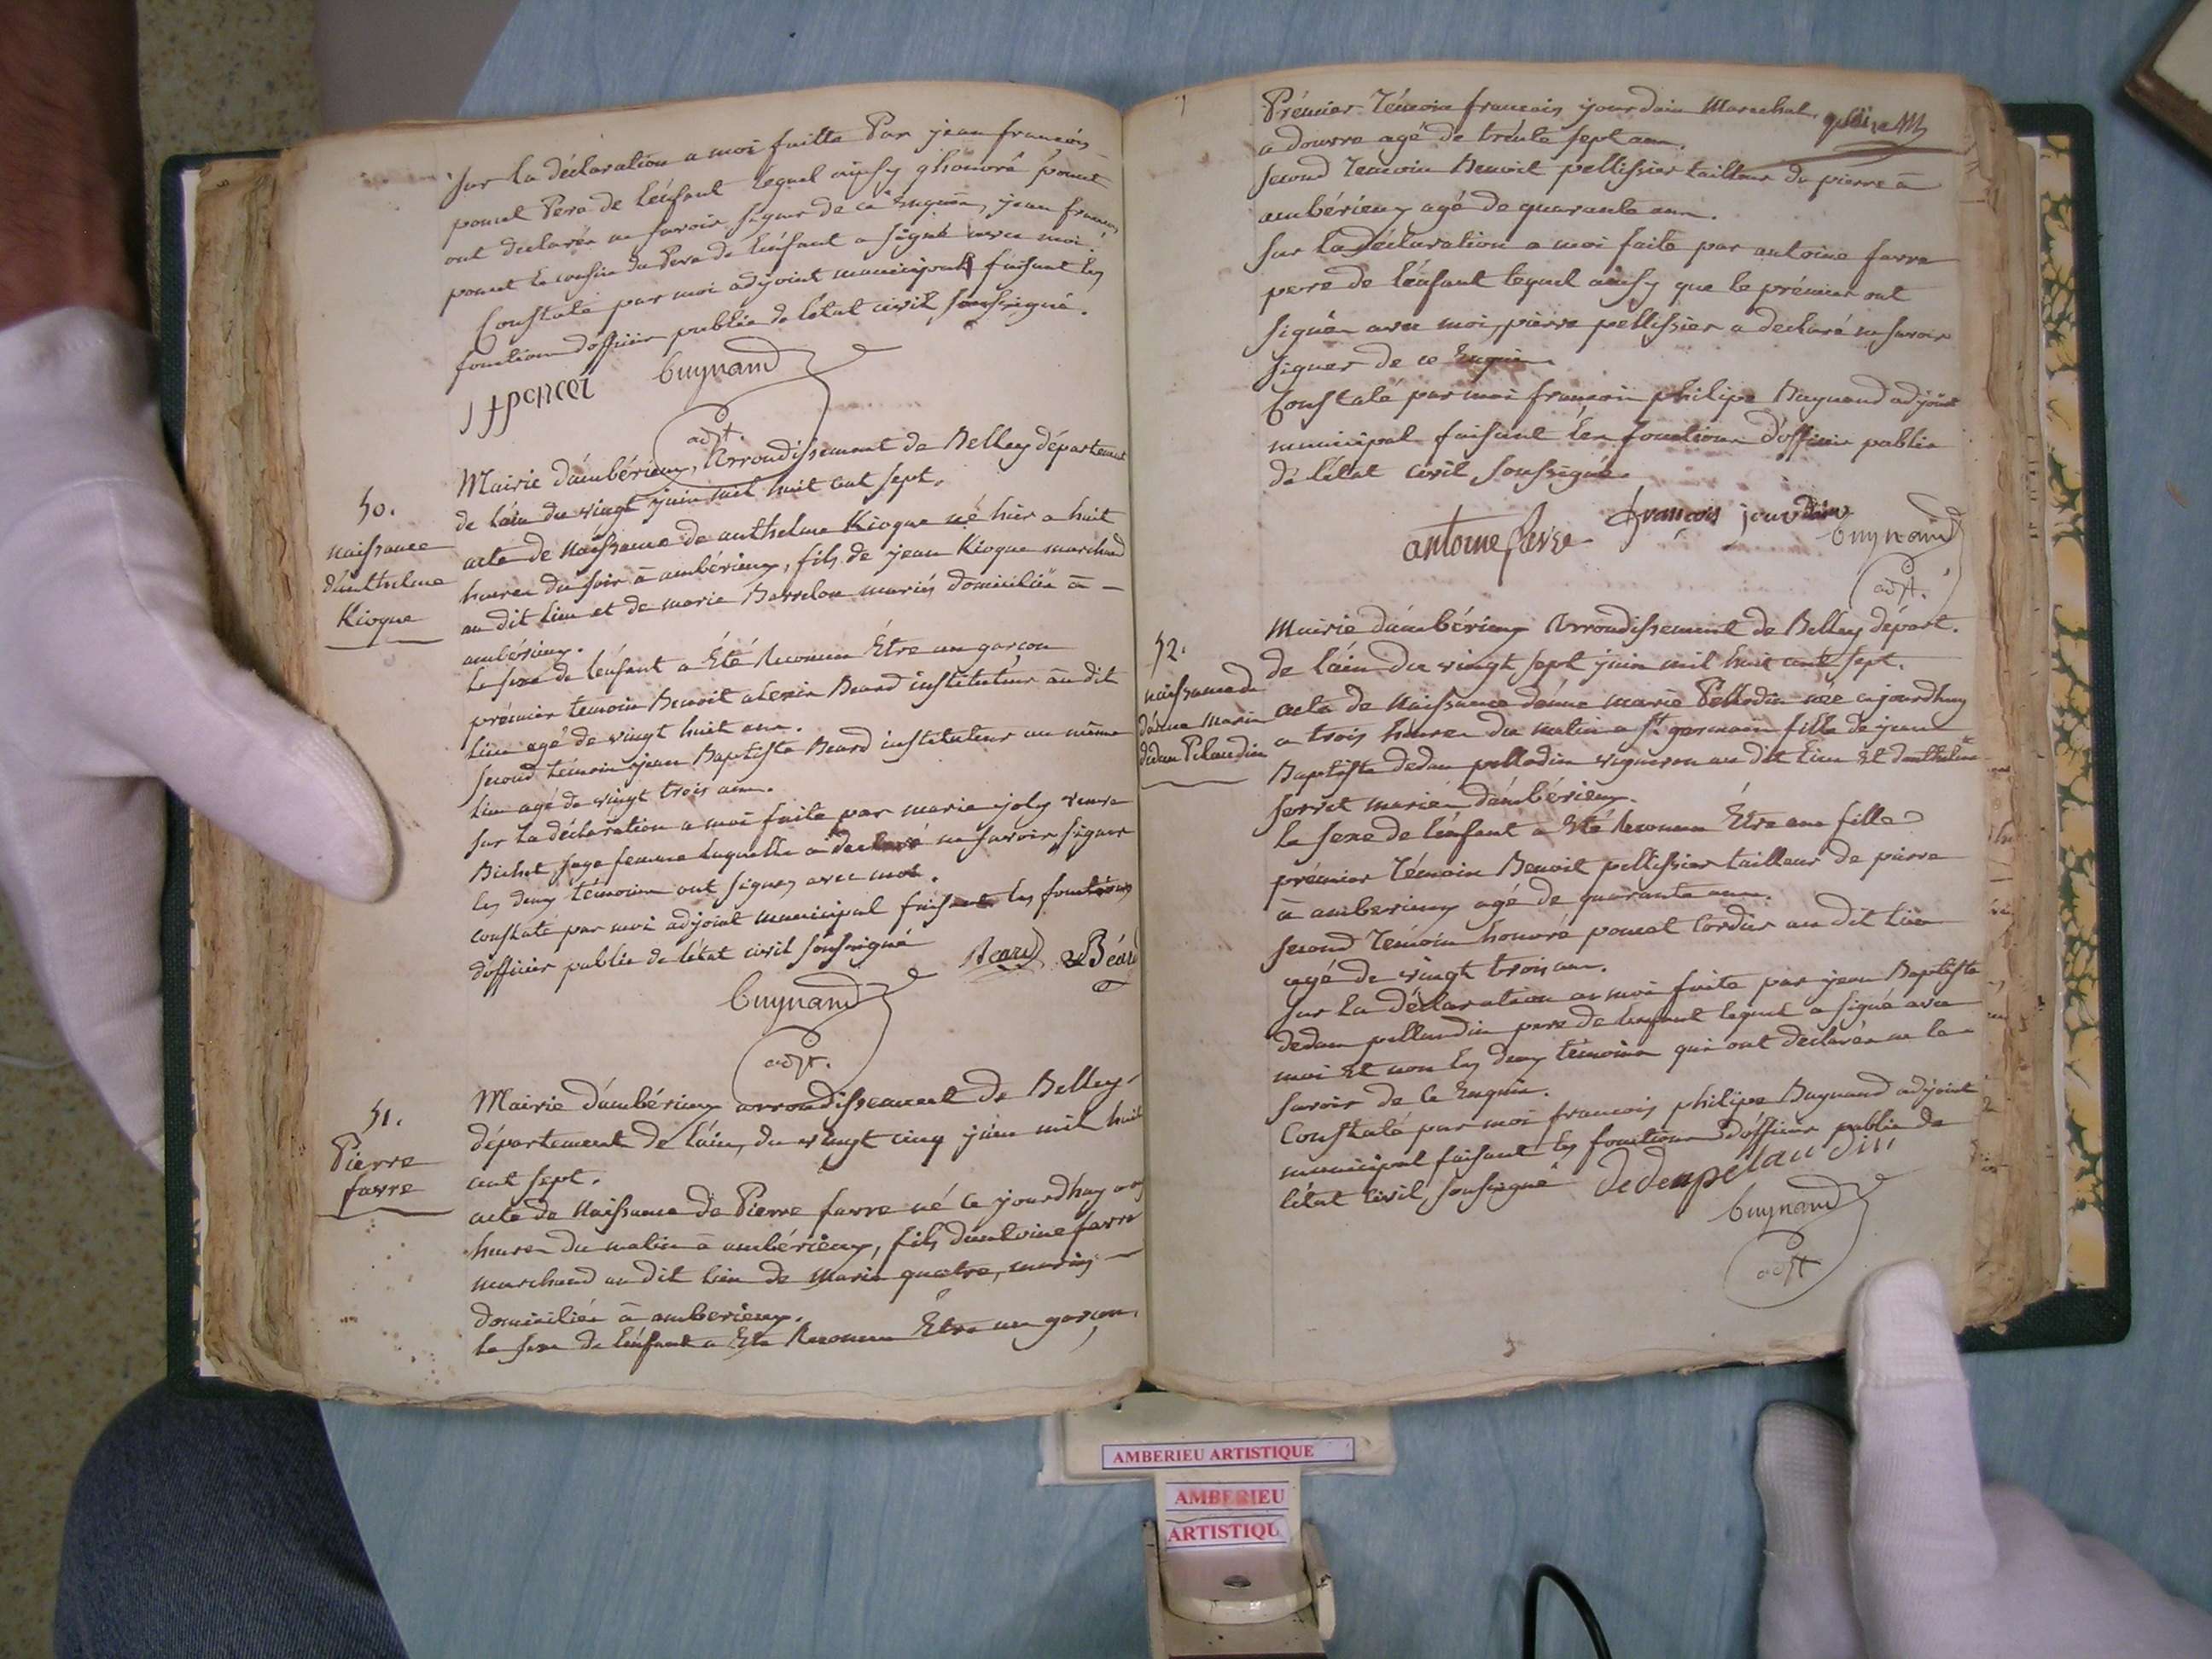 Sur la déclaration a moi faitte Par jean francois
poncet Pere de lénfant lequel ainsy q honoré poncet
ont declarés ne savoir signer de ce Enquis, jean francois
poncet le cousin du Pere de lénfant a signé avec moi.
Constaté par moi adjoint municipal faisant les
fonctions dofficier public de létat civil, soussigné.
jf poncet Buynand
adjt.
50.
naissance
dánthelme
Kioque
Mairie dámbérieux, Arrondissement de Belley département
de láin du vingt juin mil huit cent sept.
acte de Naissance de anthelme Kioque né hier a huit
heures du soir à ambérieux, fils de jean Kioque marchand
au dit lieu et de marie Barrelon mariés domiciliés à
ambérieux.
le sexe de lénfant a Eté Reconnu Être un garçon
prémier temoin Benoit alexis Beard instituteur au dit
lieu agé de vingt huit ans.
second témoin jean Baptiste Beard instituteur au même
lieu agé de vingt trois ans.
sur la déclaration a moi faite par marie joly veuve
Bichet, sage femme laquelle a declaré ne savoir signer
les deux témoins ont signés avec moi.
constaté par moi adjoint municipal faisant les fonctions
dofficier public de létat civil soussigné
Beard Béard
Buynand
adjt.
51.
Pierre
favre
Mairie dámbérieux arrondissement de Belley
département de láin, du vingt cinq juin mil huit
cent sept.
acte de Naissance de Pierre favre né ce jourdhuy
heures du matin à ambérieux, fils dantoine favre
marchand au dit lieu de marie quatre, mariés
domiciliés à amberieux.
le sexe de lénfant a Eté Reconnu Être un garçon.
Prémier Témoin francois jourdain Marechal
a douvre agé de trénte sept ans.
second Temoin Benoit pellissier tailleur de pierre à
ambérieux agé de quarante ans.
sur la déclaration a moi faite par antoine favre
pere de lénfant lequel ainsy que le prémier ont
signés avec moi, pierre pellissier a declaré ne savoir
signer de ce Enquis
Constaté par moi francois philipe Buynand adjoint
municipal faisant les fonctions d'officier public
de létat civil soussigné.
antoine favre françois jourdain Buynand
adjt.
52.
naissance de
dánne Marie
dedan Pelaudin
Mairie dámbérieux Arrondissement de Belley départ.
de láin du vingt sept juin mil huit cent sept.
acte de Naissance dánne marie Pellodin née cejourdhuy
a trois heures du matin a st germain fille de jean
Baptiste dedan pellodin vigneron au dit lieu et danthelme
serret mariés dámbérieux.
le sexe de lénfant a Eté Reconnu Être une fille
prémier Témoin Benoit pellissier tailleur de pierre
à amberieux agé de quarante ans.
second Temoin honoré poncet Cordier au dit lieu
agé de vingt trois ans.
sur la déclaration a moi faite par jean Baptiste
dedan pellaudin pere de lenfant lequel a signé avec
moi et non les deux témoins qui ont declarés ne le
savoir de ce Enquis.
Constaté par moi francois philipe Buynand adjoint
municipal faisant les fonctions dofficier public de
létat civil, soussigné dedenpelaudin
Buynand
adjt
AMBERIEU ARTISTIQUE
AMBERIEU
ARTISTIQU